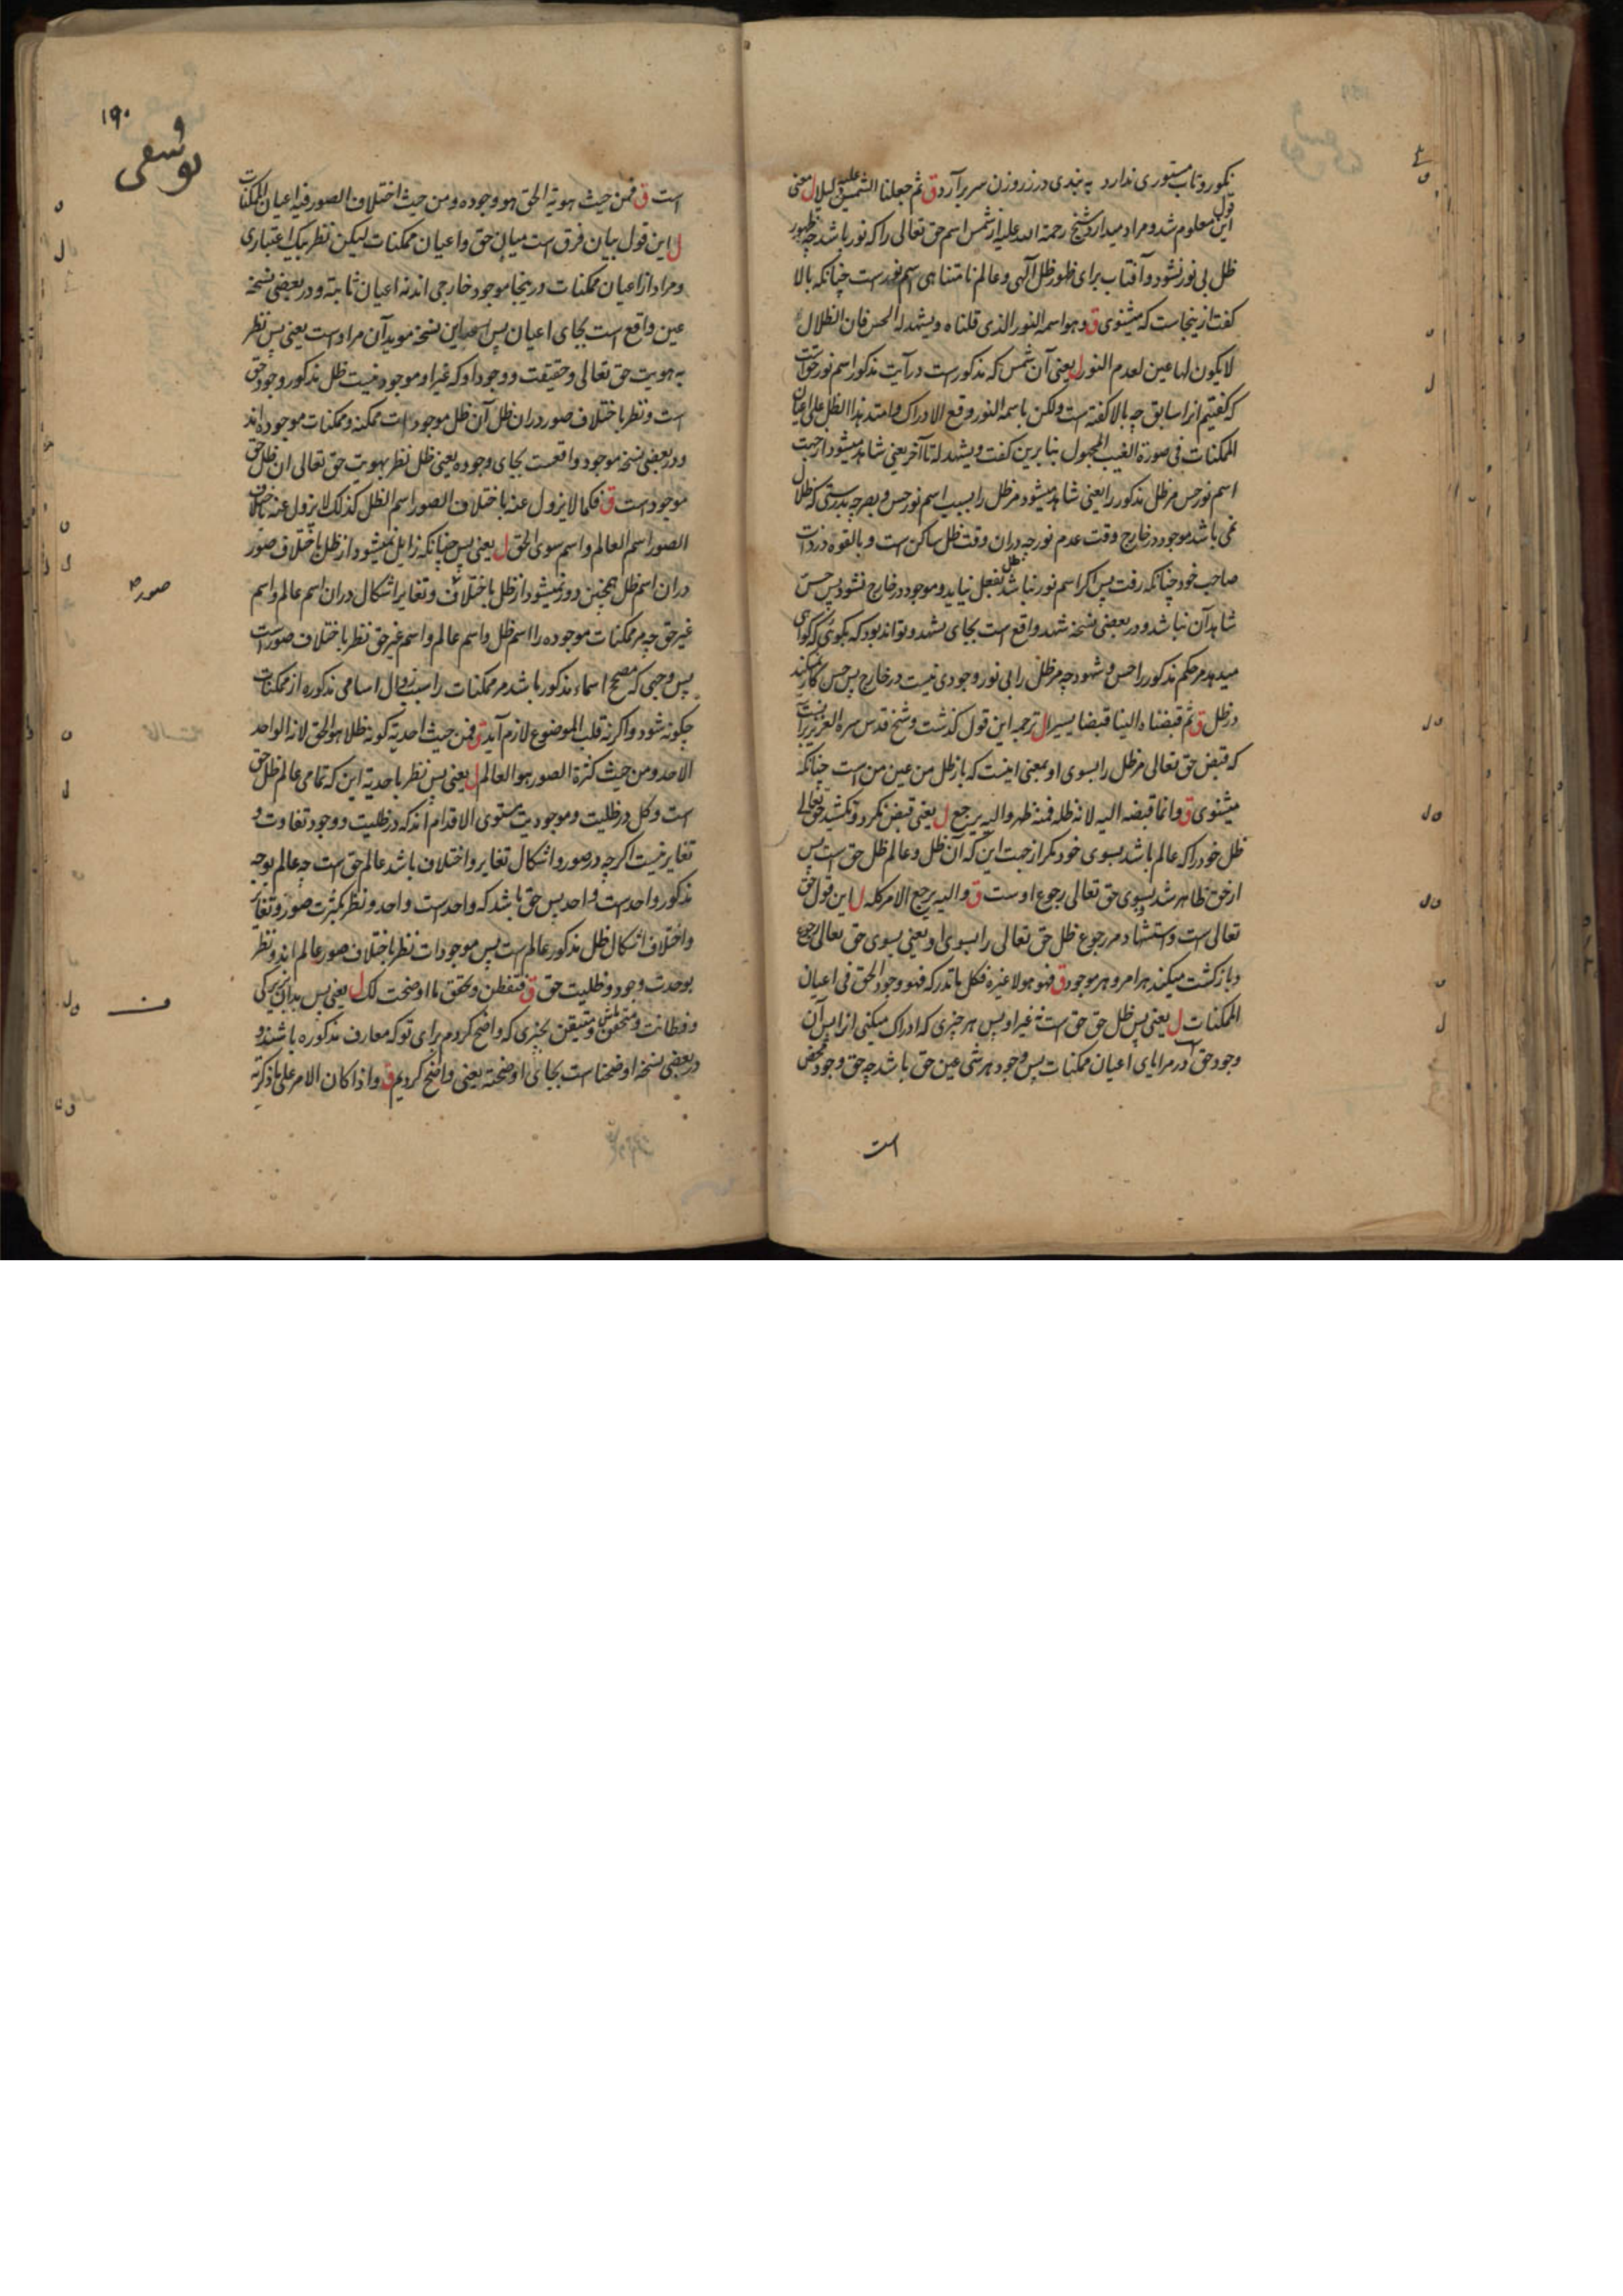 نکوروتاب مستوری ندارد به بندی در ز روزن سر برآرد ق ثم جعلنا الشمس علیه دلیلا ل معنی
این قول معلوم شد و مراد میدارد شیخ رحمة الله علیه از شمس اسم حق تعالی را که نور باشد چه ظهور
ظل بی نور نشود و آفتاب برای ظهور ظل آلهی و عالم نامتناهی اسم نورست چنانکه بالا
گفت ازینجاست که میشنوی ق و هو اسمه النور الذی قلناه و یشهد له الحس فان الظلال
لا یکون لها عین لعدم النور ل یعنی آن شمس که مذکورست در آیت مذکور اسم نور حق است
که گفتیم انرا سابق چه بالا گفته است ولکن باسمه النور وقع الادراک و امتد هذا الظل علی اعیان
الممکنات فی صورة الغیب المجهول بنابرین گفت و یشهد له تا آخر یعنی شاهد میشود از جهت
اسم نور حس مر ظل مذکور را یعنی شاهد میشود مر ظل را بسبب اسم نور حس و بصر چه بدرستی که ظلال
نمی باشد موجود در خارج وقت عدم نور چه دران وقت ظل ساکن است و بالقوه در ذات
صاحب خود چنانکه رفت پس اگر اسم نور نباشد ظل بفعل نیاید و موجود در خارج نشود پس حس
شاهد آن نباشد و در بعضی نسخه شهد واقع است بجای یشهد و تواند بود که بگوئی که گواهی
میدهد مر حکم مذکور را حس و شهود چه مر ظل را بی نور وجودی نیست در خارج پس حس کار نمیکند
در ظل ق ثم قبضناه الینا قبضا یسیرا ل ترجمه این قول گذشت و شیخ قدس سره العزیز برآنست
که قبض حق تعالی مر ظل را بسوی او بمعنی اینست که باز ظل من عین من است چنانکه
میشنوی ق و انما قبضه الیه لانه ظله فمنه ظهر و الیه یرجع ل یعنی قبض نکرد و نکشید حق تعالی
ظل خود را که عالم باشد بسوی خود مگر از جهت این که آن ظل و عالم ظل حق است پس
از حق ظاهر شد و بسوی حق تعالی رجوع اوست ق و الیه یرجع الامر کله ل این قول حق
تعالی است و استشهاد مر رجوع ظل حق تعالی را بسوی او یعنی بسوی حق تعالی رجوع
و بازگشت میکند هر امر و هر موجود ق فهو هو لا غیره فکل ما تدرکه فهو وجود الحق فی اعیان
الممکنات ل یعنی پس ظل حق حق است نه غیر او پس هر چیزی که ادراک میکنی انرا پس آن
وجود حق است در مرایای اعیان ممکنات پس وجود هر شی عین حق باشد چه حق وجود محض
است
۱۹۰
یوسفی
است ق فمن حیث هویة الحق هو وجوده و من حیث اختلاف الصور فیه اعیان الممکنات
ل این قول بیان فرق است میان حق و اعیان ممکنات لیکن نظر بیک اعتباری
و مراد از اعیان ممکنات درینجا موجود خارجی اند نه اعیان ثابته و در بعضی نسخه
عین واقع است بجای اعیان پس این نسخه موید آن مراد است یعنی پس نظر
به هویت حق تعالی و حقیقت و وجود او که غیر او موجود نیست ظل مذکور وجود حق
است و نظر باختلاف صور دران ظل آن ظل موجودات ممکنه و ممکنات موجوده اند
و در بعضی نسخه موجود واقعست بجای وجوده یعنی ظل نظر بهویت حق تعالی ان ظل حق
موجود است ق فکما لا یزول عنه باختلاف الصور اسم الظل کذلک لا یزول عنه باختلاف
الصور اسم العالم و اسم سوی الحق ل یعنی پس چنانکه زایل نمیشود از ظل باختلاف صور
دران اسم ظل همچنین دور نمیشود از ظل باختلاف و تغایر اشکال دران اسم عالم و اسم
صور
غیر حق چه مر ممکنات موجوده را اسم ظل و اسم عالم و اسم غیر حق نظر باختلاف صور است
پس وجهی که مصحح اسماء مذکور باشد مر ممکنات راست زوال اسامی مذکوره از ممکنات
چگونه شود و اگر نه قلب الموضوع لازم آید ق فمن حیث احدیة کونه ظلا هو الحق لانه الواحد
الاحد و من حیث کثرة الصور هو العالم ل یعنی پس نظر باحدیة این که تمامی عالم ظل حق
است و کل در ظلیت و موجودیت مستوی الاقدام اند که در ظلیت و وجود تفاوت و
تغایر نیست اگرچه در صور و اشکال تغایر و اختلاف باشد عالم حق است چه عالم بوجه
مذکور واحد است و احد پس حق باشد که واحدست و احد و نظر بکثرت صور و تغایر
و اختلاف اشکال ظل مذکور عالم است پس موجودات نظر باختلاف صور عالم اند و نظر
بوحدت وجود و ظلیت حق ق فتفطن و تحقق ما اوضحت لک ل یعنی پس بدان بزیرکی
و فطانت و متحقق باش و متیقن بچیزی که واضح کردم برای تو که معارف مذکوره باشند و
در بعضی نسخه اوضحنا است بجای اوضحته یعنی واضح کردیم ق و اذا کان الامر علی ما ذکرته